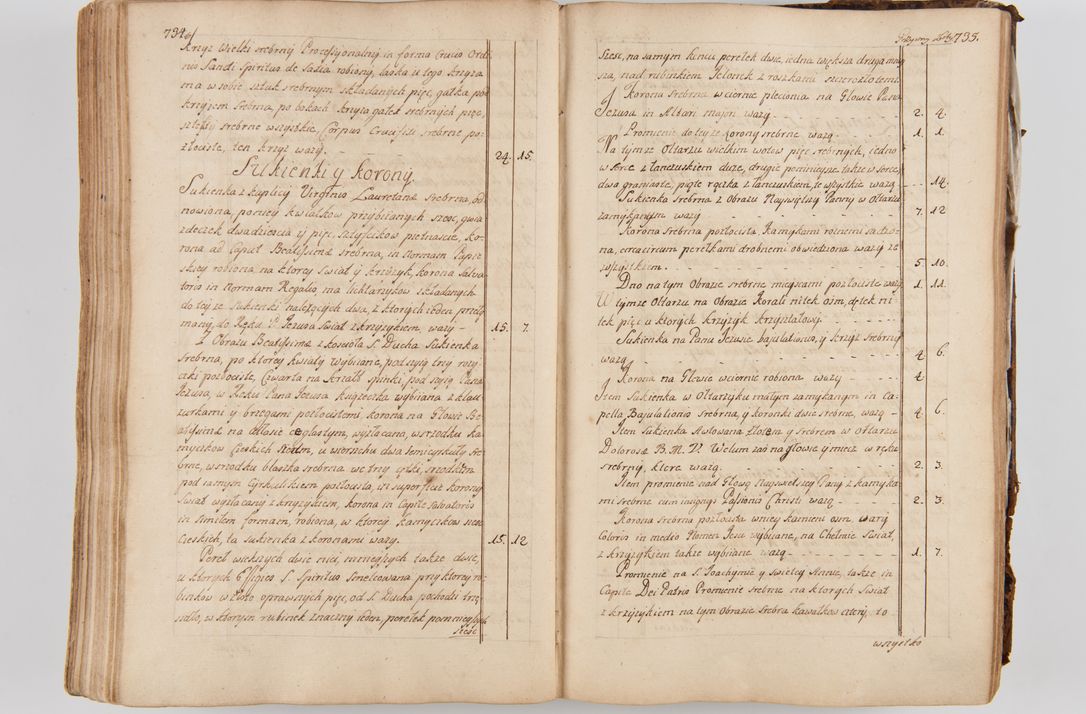 734
Krzyż Wielki srebrny Processyonalny in forma Crucis Ordi
nis Sancti Spiritus de Saxia robiony, laska u tego krzyża
ma w sobie sztuk srebrnych składanych pięć, gałka pod
krzyżem srebrna, po bokach krzyża gałek srebrnych pięć,
srebrne wszystkie, Corpus Crucifixi srebrne po-
złociste, ten krzyż waży. 24. 15.
Sukienki y Korony
Sukienka z kaplicy Virginis Lauretanæ srebrna, od-
nowiona, pod niey kwiatkow przybiianych szesc, gwia
zdeczek dwadziescia y pięc, sztyfcikow pietnascie, ko-
rona ad Caput Beatissimæ srebrna, in Normam Papie-
skiey robiona, na ktorey swiat y krzyżyk, korona Salva
toris in Normam Regalis, ma lichtarzykow składanych
do teyże sukienki należących dwa, z ktorych ieden przeły
many, do Ręku P. Jezusa swiat z krzyżykiem, waży - 15. 7.
Z Obrazu Beatissimæ z kościoła S. Ducha Sukienka
srebrna, po ktorey kwiaty wybiiane, pod szyią trzy roży
czki pozłociste, Czwarta na kształt spinki, pod szyią Pana
Jezusa, w Ręku Pana Jezusa książeczka wybiiana z klau
zurkami y brzegami pozłocistemi, korona na Głowie Be-
atissimæ na Atłasie wyzłacana, we srzodku ka-
myczkow Czeskich u wierzchu dwa semicirculy sre
brne, we srzodku blaszka srebrna we trzy
pod samym Cyrkulikiem pozłocista, in superficie korony
swiat wyzłacany z krzyżykiem, korona in Capite Salvatoris
in simili formam, robiona, w ktorey kamyczkow szesc
Czeskich, ta sukienka z koronami waży. 15. 12
Pereł większych dwie nici, mnieyszych także dwie,
u ktorych Effigies S. Spiritus smelcowana przy ktorey ru-
binkow w złoto oprawnych pięc, od S. Ducha pochodzi trzę
sidło, w ktorym rubinek znaczny ieden, perełek pomnieyszych
szesc
Grzywny Łoty 735.
szesc, na samym końcu perełek dwie, iedna większa druga mniey
sza, nad rubinkiem Jelonek z roszkami szczerozłotemi.
Korona srebrna w ciernie pleciona na Głowie Pana
Jezusa in Altari majori waży - 2. 4.
Promienie do teyże korony srebrne ważą - 1. 1.
Na tymże Ołtarzu wielkim wotow pięc srebrnych, iedno
w serce z łanczuszkiem duże, drugie pomnieysze także w serce,
dwa graniaste, piąte rączka z łanczuszkiem, te wszystkie ważą - 14.
Sukienka srebrna z Obrazu Nayswiętszy Panny w Ołtarzu
zamykanym waży - 7. 12
Korona srebrna pozłocista, kamykami roznemi sadzo-
na, circacircum perełkami drobnemi obwiedziona waży ze
wszystkiem. - 5. 10.
Dno na tym Obrazie srebrne mieyscami pozłociste waży 1. 11.
W tymże Ołtarzu na Obrazie korali nitek osm, drzek ni
tek pięc u ktorych krzyżyk krzyształowy.
Sukienka na Panu Jezusie bajulantis, y krzyż srebrny
waży. - 4. 6.
Korona na Głowie w ciernie robiona waży - 4
Item sukienka w Ołtarzyku małym zamykanym in Ca-
pella Bajulationis srebrna, y koronki dwie srebrne, ważą - 4. 6.
Item sukienka haftowana złotem y srebrem w Ołtarzu
Dolorosæ B. M. V. Welum zaś na głowie y miecz w ręku
srebrny, ktore ważą. - 2. 3.
Item promienie nad Głową Nayswiętszey Panny z kamyka
mi srebrne cum insignys Passionis Christi ważą - 2. 3.
Korona srebrna pozłocista w niey kamieni osm, varij
Coloris in medio Nomen Jesu wybiiane, na Chełmie swiat,
z krzyżykiem także wybiiane waży - 1. 7.
Promienie na S. Joachymie y swiętey Annie, także in
Capite Dei Patris Promienie srebrne na ktorych swiat
z krzyżykiem na tym Obrazie srebra kawałkow cztery, to
wszystko